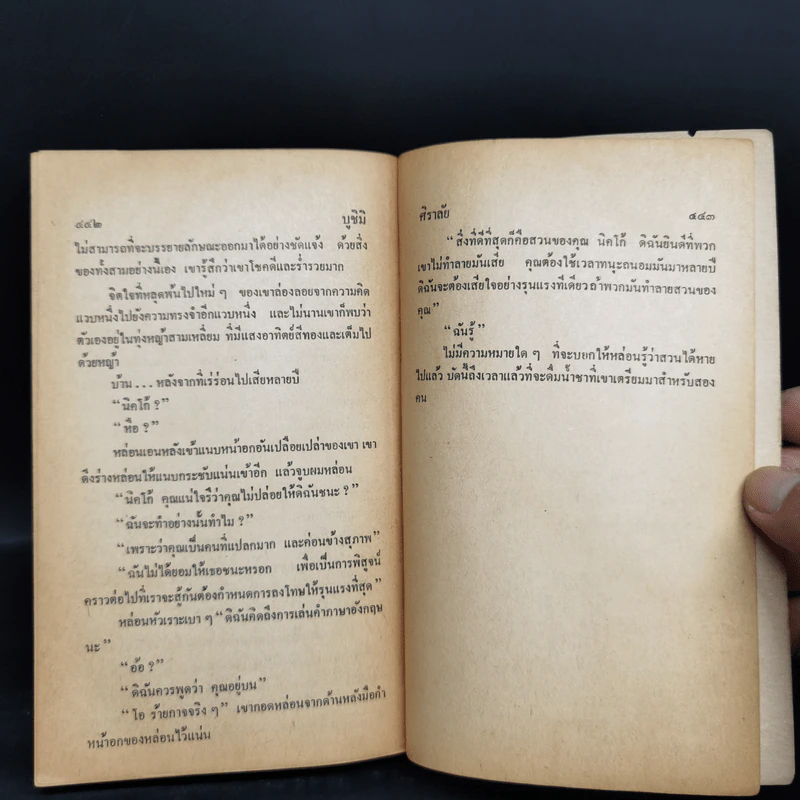 ๔๔๒ บูชิมิ
ไม่สามารถที่จะบรรยายลักษณะออกมาได้อย่างชัดแจ้ง ด้วยสิ่ง
ของทั้งสามอย่างนี้เอง เขารู้สึกว่าเขาโชคดีและร่ำรวยมาก
จิตใจที่หลุดพ้นไปใหม่ ๆ ของเขาล่องลอยจากความคิด
แวบหนึ่งไปยังความทรงจำอีกแวบหนึ่ง และไม่นานเขาก็พบว่า
ตัวเองอยู่ในทุ่งหญ้าสามเหลี่ยม ที่มีแสงอาทิตย์สีทองและเต็มไป
ด้วยหญ้า
บ้าน ... หลังจากที่เร่ร่อนไปเสียหลายปี
“นิคโก้ ?”
“หือ ?”
หล่อนเอนหลังเข้าแนบหน้าอกอันเปลือยเปล่าของเขา เขา
ดึงร่างหล่อนให้แนบกระชับแน่นเข้าอีก แล้วจูบผมหล่อน
“นิคโก้ คุณแน่ใจรึว่าคุณไม่ปล่อยให้ดิฉันชนะ ?”
“ฉันจะทำอย่างนั้นทำไม ?”
“เพราะว่าคุณเป็นคนที่แปลกมาก และค่อนข้างสุภาพ”
“ฉันไม่ได้ยอมให้เธอชนะหรอก เพื่อเป็นการพิสูจน์
คราวต่อไปที่เราจะสู้กันต้องกำหนดการลงโทษให้รุนแรงที่สุด”
หล่อนหัวเราะเบา ๆ “ดิฉันคิดถึงการเล่นคำภาษาอังกฤษ
นะ”
“อ้อ ?”
“ดิฉันควรพูดว่า คุณอยู่บน”
“โอ ร้ายกาจจริง ๆ” เขากอดหล่อนจากด้านหลังมือกำ
หน้าอกของหล่อนไว้แน่น
ศิราลัย ๕๔๓
“สิ่งที่ดีที่สุดก็คือสวนของคุณ นิคโก้ ดิฉันยินดีที่พวก
เขาไม่ทำลายมันเสีย คุณต้องใช้เวลาทนุะถนอมมันมาหลายปี
ดิฉันจะต้องเสียใจอย่างรุนแรงทีเดียว ถ้าพวกมันทำลายสวนของ
คุณ”
“ฉันรู้”
ไม่มีความหมายใด ๆ ที่จะบอกให้หล่อนรู้ว่าสวนได้หาย
ไปแล้ว บัดนี้ถึงเวลาแล้วที่จะดื่มน้ำชาที่เขาเตรียมมาสำหรับสอง
คน